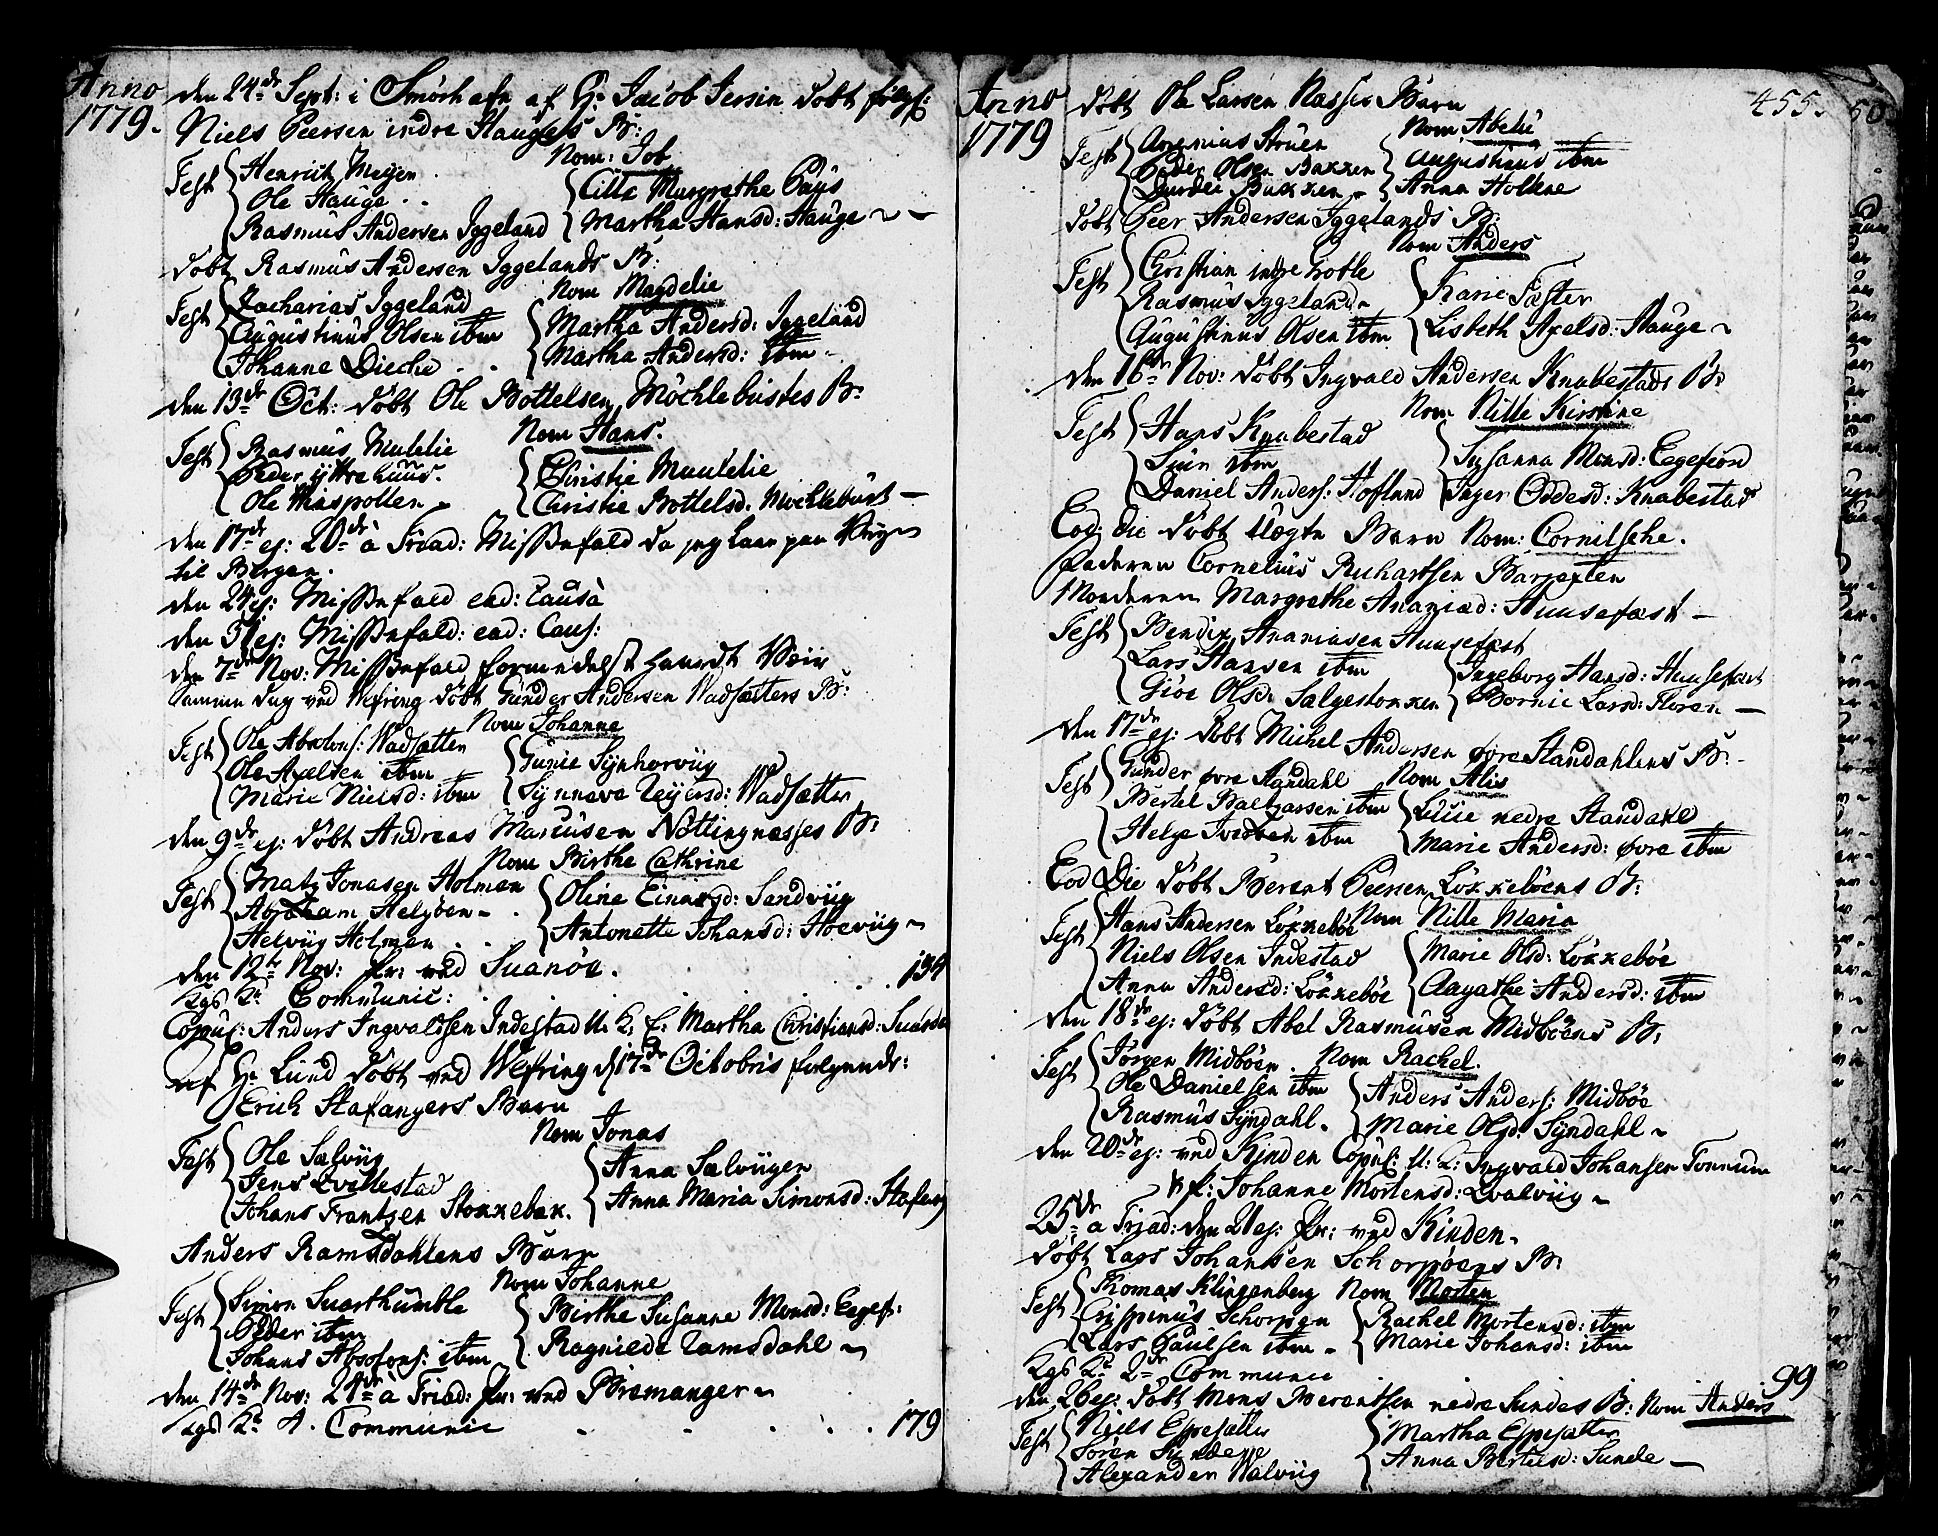 Anno 1779.
den 24de Sept: i Smørhafn af Hr Jacob Jersin døbt følgf:
Niels Peersen indre Hauges B:
Nom: Job
Test Henrich Meyer
Ole Hauge
Rasmus Andersen Iggeland
Cille Margrethe Paus
Martha Hansd: Hauge
døbt Rasmus Andersen Iggelands B:
Nom Magdelie
Test Zacharias Iggeland
Augustinus Olsen ibm
Johanne
Martha Andersd: Iggeland
Martha Andersd: ibm
den 13de Oct: døbt Ole Bottelsen Møchlebustes B:
Nom Hans.
Test Rasmus Mulelie
Peder ÿttrehuus.
Ole
Christie Muulelie
Christie Bottelsd. Mochlebust
den 17de ej: 20de a Triad: Missefald da jeg laae paa Reys
til Bergen.
den 24 ej: Missefald ead: causa
den 31 ej: Missefald: ead: Caus:
den 7de Nov: Missefald formedelst haardt Veir
Samme Dag ved Wefring døbt Gunder Andersen Wadsætters B:
Nom Johanne
Test Ole Absolons: Wadsætter
Ole Axelsen ibm
Marie Nielsd: ibm
Gunie
Synneve Wadsætter
den 9de ej: døbt Andreas Marcusen Nøttingnesses B:
Nom Birthe Cathrine
Test Matz Jonasen Holmen
Abraham Helgøen
Helvig Holmen
Oline Einersd: Sandvüg
Antonette Johansd: Hoevüg
den 12te Nov: Pr: ved Suanøe.
Kgs Kr Communic: 134
Copul: Anders Ingvaldsen Indestad U: K: & Martha Christiansd: Suanøe
af Hr Lund døbt ved Wefring d 17de Octobris følgende:
Erich Stafangers Barn
Nom Jonas
Test Ole Sælvüg
Jens Qvillestad
Johans Frantzen Stokkebak.
Anna Sælvügen
Anna Maria Simonsd: Stafang
Anders Ramsdahlens Barn
Nom Johanne
Test Simon Suarthumle
Peder ibm
Johans Absolons: ibm
Birthe Susanne Monsd: Eegef:
Ragnilde Ramsdahl
den 14de Nov: 24de a Triad: Pr: ved Bremanger
Kgs Kr A. Communic 179
Anno 1779
455.
døbt Ole Larsen Nasses Barn
Nom Abelü
Test Arsenius Struen
Peder Olsen Bakken
Durdei Bakken
Augustinus ibm
Anna Holkne
døbt Peer Andersen Iggelands B:
Nom Anders
Test Christian indre Grotle
Rasmus Iggeland
Augustinus Olsen ibm
Karie Fæster
Lisbeth Axelsd: Hauge
den 16de Nov: døbt Ingvald Andersen Knabestads B:
Nom Nille Kirstine
Test Hans Knabestad
Siur ibm
Daniel Anders: Hofland
Susanna Monsd: Eegefiord
Inger Oddesd: Knabestad
Eod: die døbt uægte Barn Nom: Cornilsche.
Faderen Cornelius Richartsen Barsexten
Moderen Margrethe Ananiæd: Huusefast
Test Bendix Ananiasen Huusefast
Lars Hansen ibm
Giøe Olsd: Salgestokken
Ingeborg Hansd: Huusefast
Bornie Larsd: Floren
den 17de ej: døbt Michel Andersen øvre Standahlens B:
Nom Alis
Test Gunder øvre Standahl
Bertel Baltzarsen ibm
Helge Iversen ibm
Lucie nedre Standahl
Marie Andersd: øvre ibm
Eod Die døbt Berent Peersen Løkkebøens B:
Nom Nille Maria
Test Hans Andersen Løkkebøe
Niels Olsen Indestad
Anna Andersd: Løkkebøe
Marie Olsd: Løkkebøe
Aagathe Andersd: ibm
den 18de ej: døbt Abel Rasmusen Midbøens B:
Nom Rachel.
Test Jørgen Midbøen
Ole Danielsen ibm
Rasmus Sÿndahl.
Anders Anders: Midbøe
Marie Olsd: Sÿndahl
den 20de ej: ved Kinden Copul: U: K: Ingvald Johansen Tonnum
& p: Johanne Mortensd: Qvalvüg
25de a Triad: den 21 ej: Pr: ved Kinden
døbt Lars Johansen Schorpøens B:
Nom Morten
Test Thomas Klingenberg
Crispinus Schorpen
Lars Paulsen ibm
Rachel Mortensd: ibm
Marie Johansd: ibm
Kgs Kr 2de Communic 99
den 26 ej: døbt Mons Berentsen nedre Sundes B: Nom Anders
Test Niels Espesætter
Søren Sunde
Alexander Walvüg
Martha Espesætter
Anna Bertelsd: Sunde